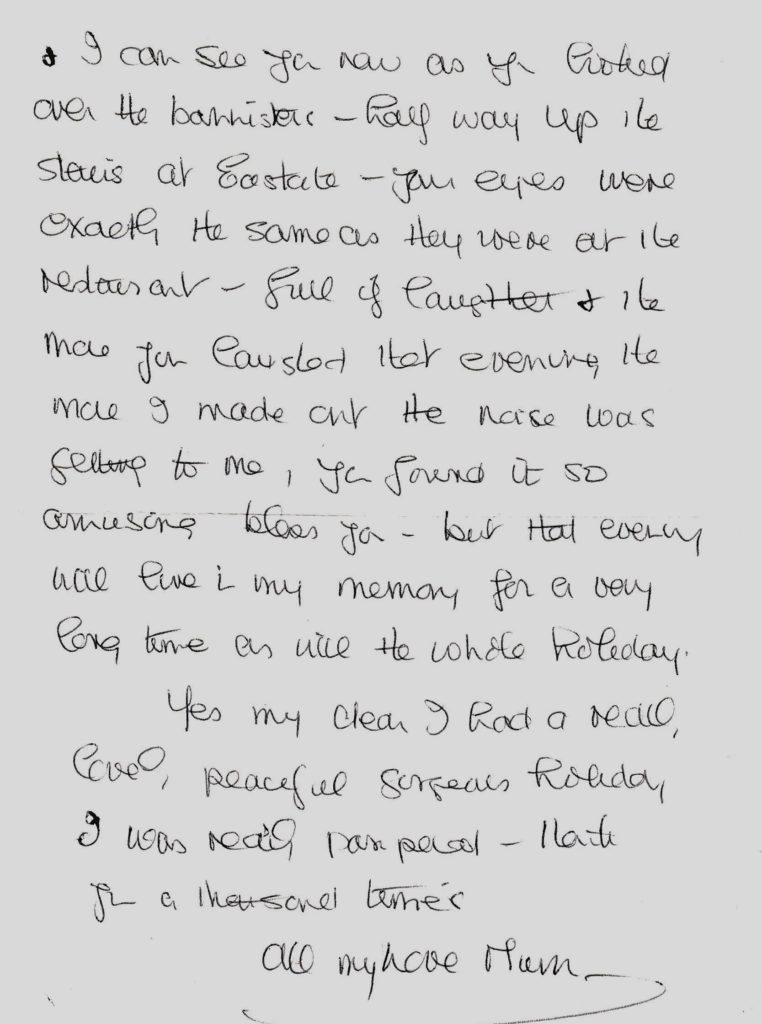 & I can see you now as you looked
over the bannisters - half way up the
stairs at Eastcote - your eyes were
exactly the same as they were at the
restaurant - full of laughter & the
more you laughed that evening the
more I made out the noise was
getting to me, you found it so
amusing bless you - but that evening
will live in my memory for a very
long time as will the whole holiday.
Yes my dear I had a really,
lovely, peaceful gorgeous holiday
I was really pampered - thank
you a thousand time's
All my love Mum